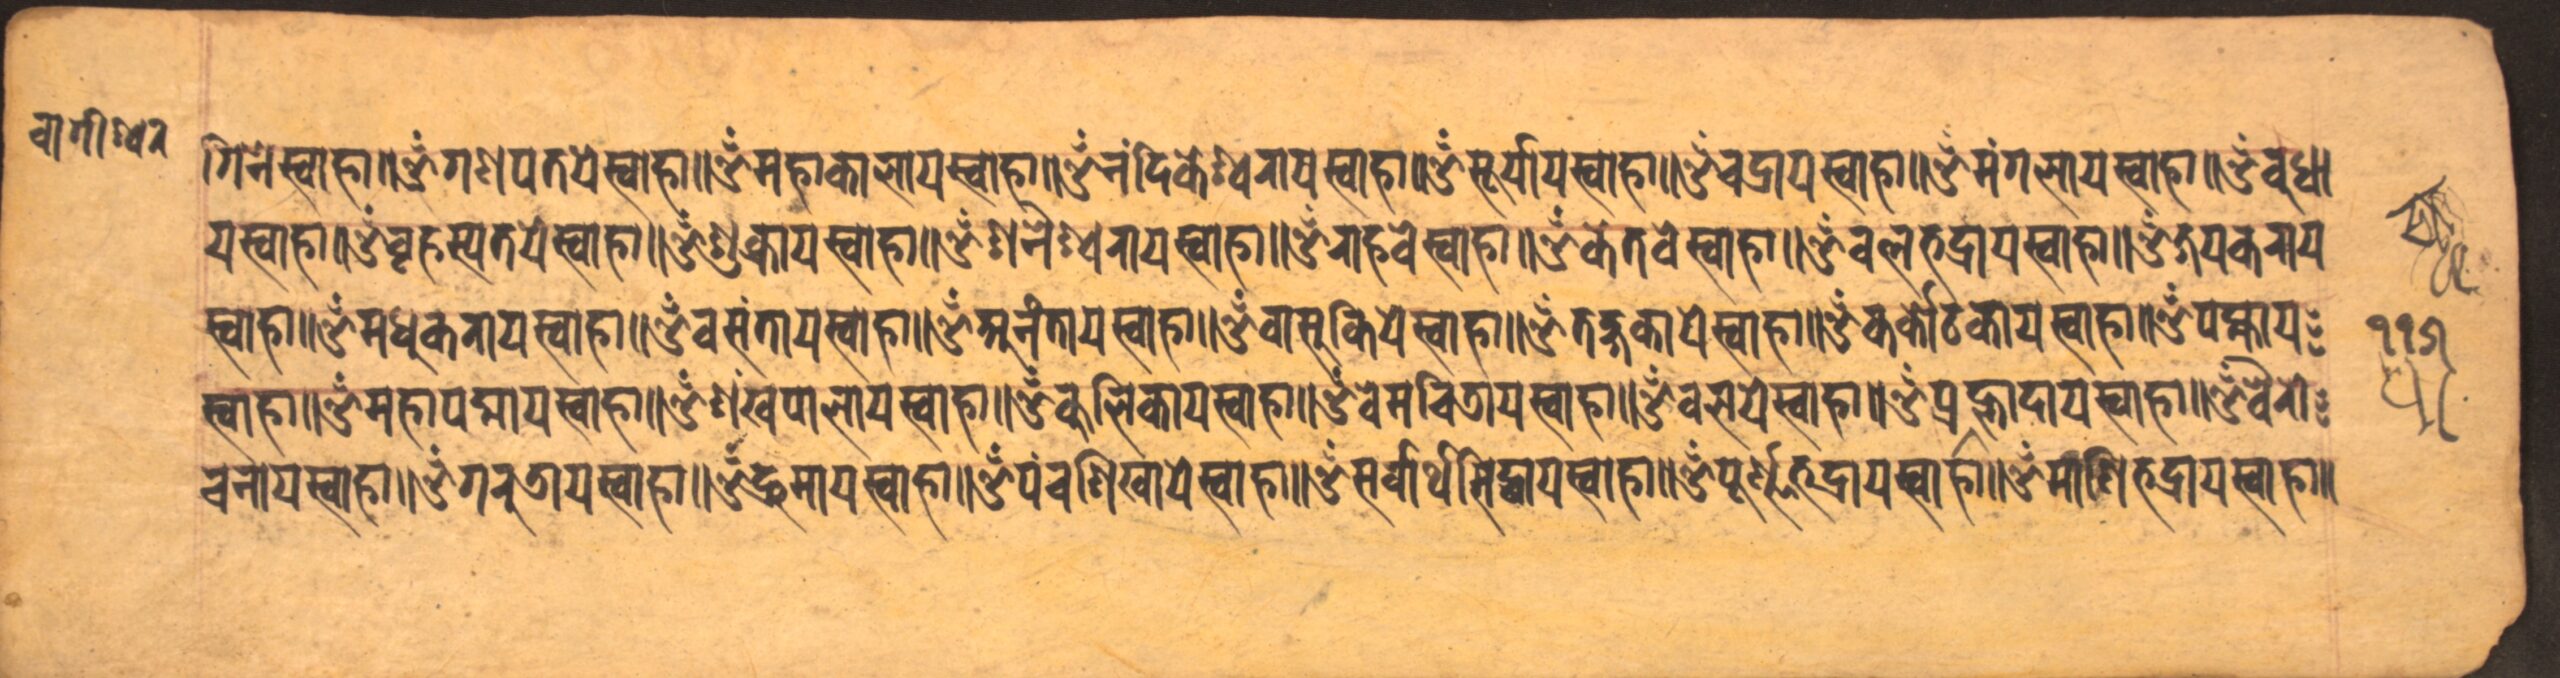 वागीश्वर
गिने स्वाहा॥ ॐ गणपतये स्वाहा॥ ॐ महाकालाय स्वाहा॥ ॐ नंदिकेश्वराय स्वाहा॥ ॐ सूर्याय स्वाहा॥ ॐ चद्राय स्वाहा॥ ॐ मंगलाय स्वाहा॥ ॐ वुधा
य स्वाहा॥ ॐ वृहस्पतये स्वाहा॥ ॐ शुक्राय स्वाहा॥ ॐ शनैश्चराय स्वाहा॥ ॐ राहवे स्वाहा॥ ॐ केतवे स्वाहा॥ ॐ वलभद्राय स्वाहा॥ ॐ जयकराय
स्वाहा॥ ॐ मधुकराय स्वाहा॥ ॐ वसंताय स्वाहा॥ ॐ अनंताय स्वाहा॥ ॐ वासुकिये स्वाहा॥ ॐ तक्षकाये स्वाहा॥ ॐ कर्कोटकाय स्वाहा॥ ॐ पद्माय
स्वाहा॥ ॐ महापद्माय स्वाहा॥ ॐ शंखपालाय स्वाहा॥ ॐ कुलिकाय स्वाहा॥ ॐ वेमचित्राय स्वाहा॥ ॐ वलये स्वाहा॥ ॐ प्रह्लादाय स्वाहा॥ ॐ वैरो
चनाय स्वाहा॥ ॐ गरुडाय स्वाहा॥ ॐ द्रुमाय स्वाहा॥ ॐ पंचशिखाये स्वाहा॥ ॐ सर्वार्थसिद्धाय स्वाहा॥ ॐ पूर्णभद्राय स्वाहा॥ ॐ माणिभद्राय स्वाहा॥